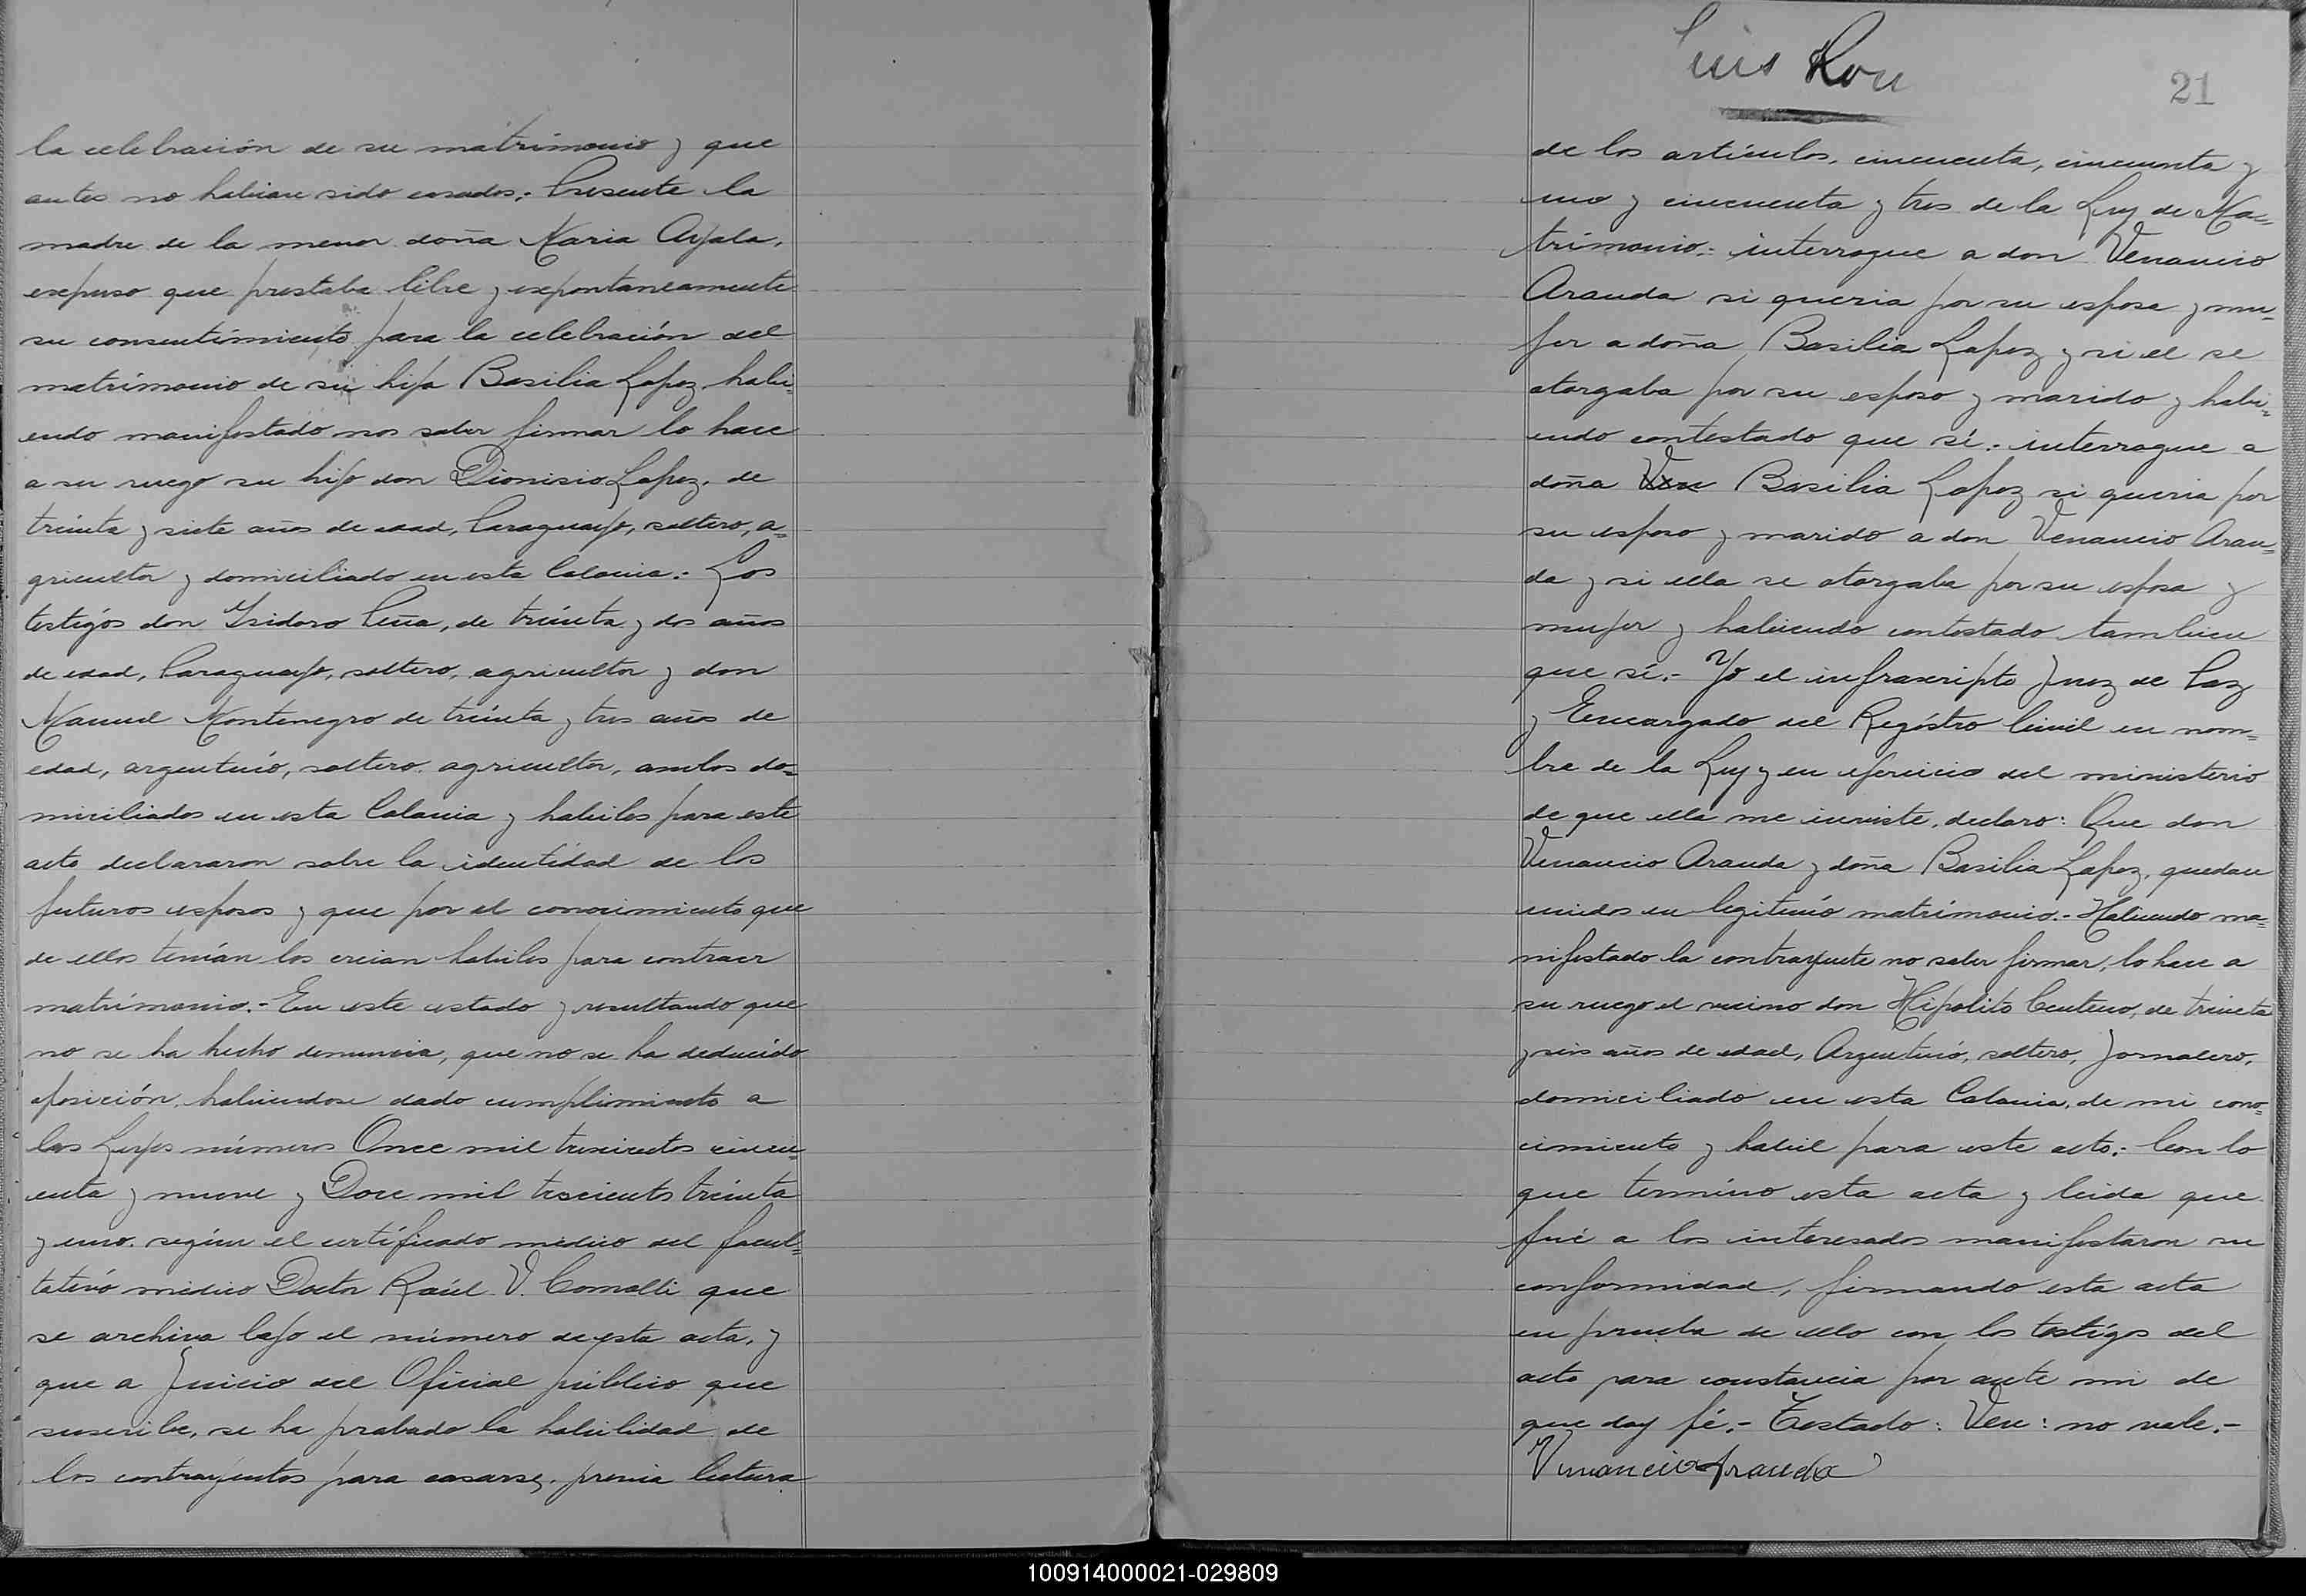 la celebración de su matrimonio y que
antes no habian sido casados: Presente la
madre de la menor doña Maria Ayala,
expuso que prestaba libre y expontaneamente
su consentimiento para la celebración del
matrimonio de su hija Basilia Lopez, habi=
endo manifestado nos saber firmar lo hace
a su ruego su hijo don Dionisio Lopez, de
treinta y siete años de edad, Paraguayo, soltero, a=
gricultor y domiciliado en esta Colonia: Los
testigos don Ysidoro Peña, de treinta y dos años
de edad, Paraguayo, soltero, agricultor y don
Manuel Montenegro de treinta y tres años de
edad, argentino, soltero, agricultor, ambos do=
miciliados en esta Colonia y habiles para este
acto declararon sobre la identidad de los
futuros esposos y que por el conocimiento que
de ellos tenían los creian habiles para contraer
matrimonio.- En este estado y resultando que
no se ha hecho denuncia, que no se ha deducido
oposición, habiendose dado cumplimiento a
las Leyes números Once mil trescientos cincu=
enta y nueve y Doce mil trescientos treinta
y uno, según el certificado médico del facul=
tativo médico Doctor Raúl V. Comolli que
se archiva bajo el número de esta acta, y
que a Juicio del Oficial público que
suscribe, se ha probado la habilidad de
los contrayentes para casarse, previa lectura
Luis Rou
21
de los artículos, cincuenta, cincuenta y
uno y cincuenta y tres de la Ley de Ma=
trimonio: interrogue a don Venancio
Aranda si queria por su esposa y mu=
jer a doña Basilia Lopez y si el se
otorgaba por su esposo y marido y habi=
endo contestado que sí: interrogue a
doña Ven Basilia Lopez si queria por
su esposo y marido a don Venancio Aran=
da y si ella se otorgaba por su esposa y
mujer y habiendo contestado tambien
que sí.- Yo el infrascripto Juez de Paz
y Encargado del Registro Civil en nom=
bre de la Ley y en ejercicio del ministerio
de que ella me inviste, declaro: Que don
Venancio Aranda y doña Basilia Lopez, quedan
unidos en legitimo matrimonio.- Habiendo ma=
nifestado la contrayente no saber firmar, lo hace a
su ruego el vecino don Hipolito Centeno, de treinta
y seis años de edad, Argentino, soltero, Jornalero,
domiciliado en esta Colonia, de mi cono=
cimiento y habil para este acto: Con lo
que termino esta acta y leida que
fué a los interesados manifestaron su
conformidad, firmando esta acta
en prueba de ello con los testigos del
acto para constancia por ante mi de
que doy fé.- Testado: Ven: no vale.-
Venancio Aranda
100914000021-029809